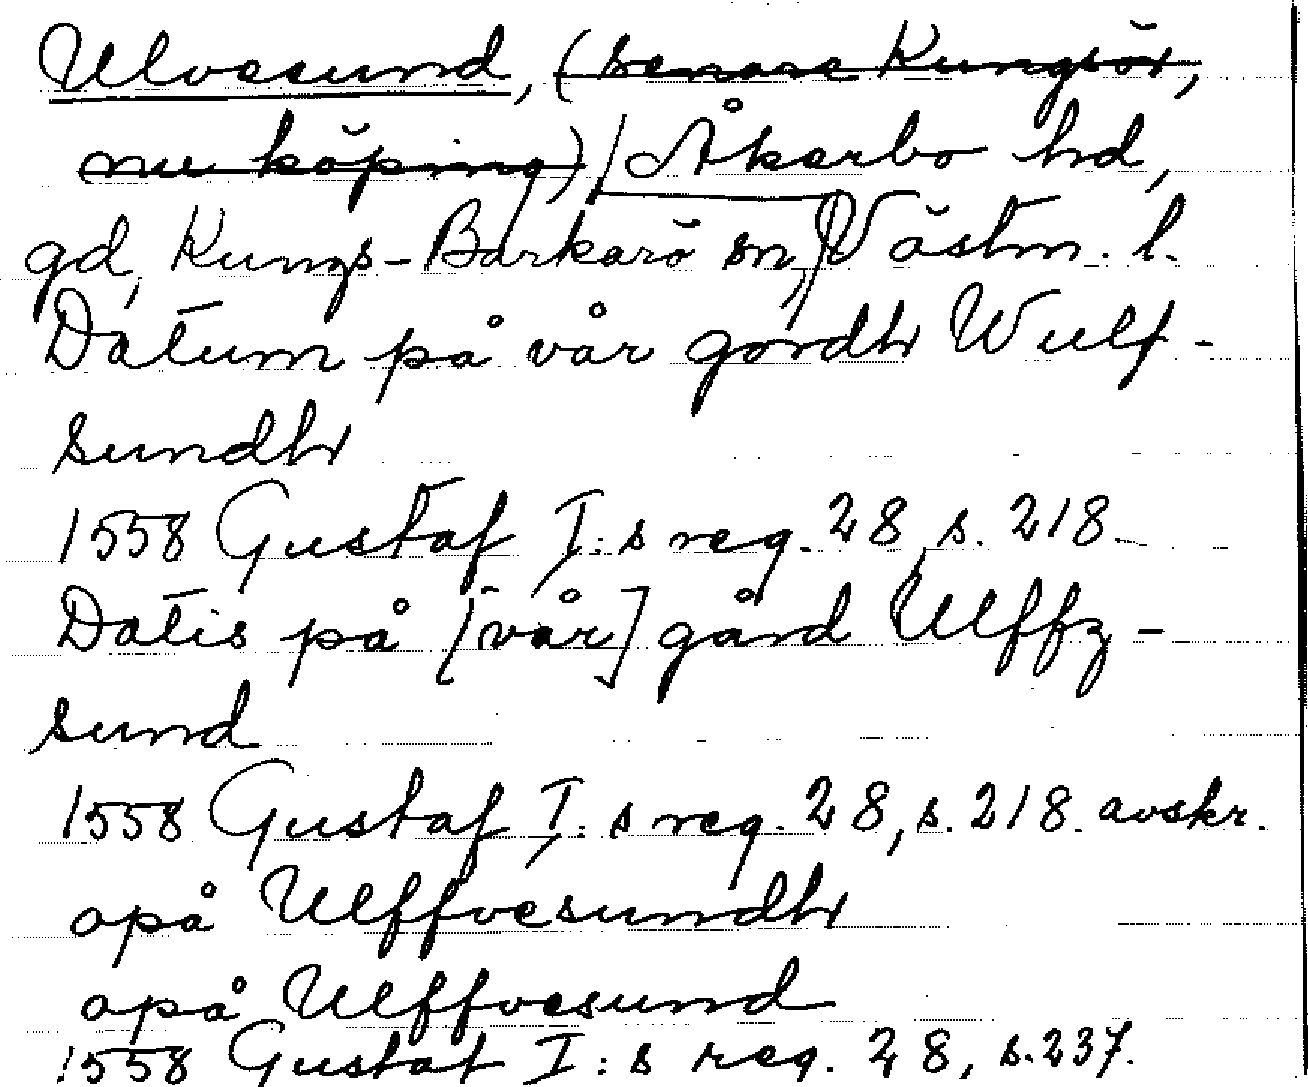 Ulvesund, (senare Kungsör,
nu köping) Åkerbo hd,
gd, Kungs-Barkarö sn, Västm. l.
Datum på vår gordh Wulf-
sundh
1558 Gustaf I:s reg. 28, s. 218.
Datis på [vår] gård Ulffz-
sund
1558 Gustaf I:s reg. 28, s. 218. avskr.
opå Ulffvesundh
opå Ulffvesund
1558 Gustaf I:s reg. 28, s. 237.